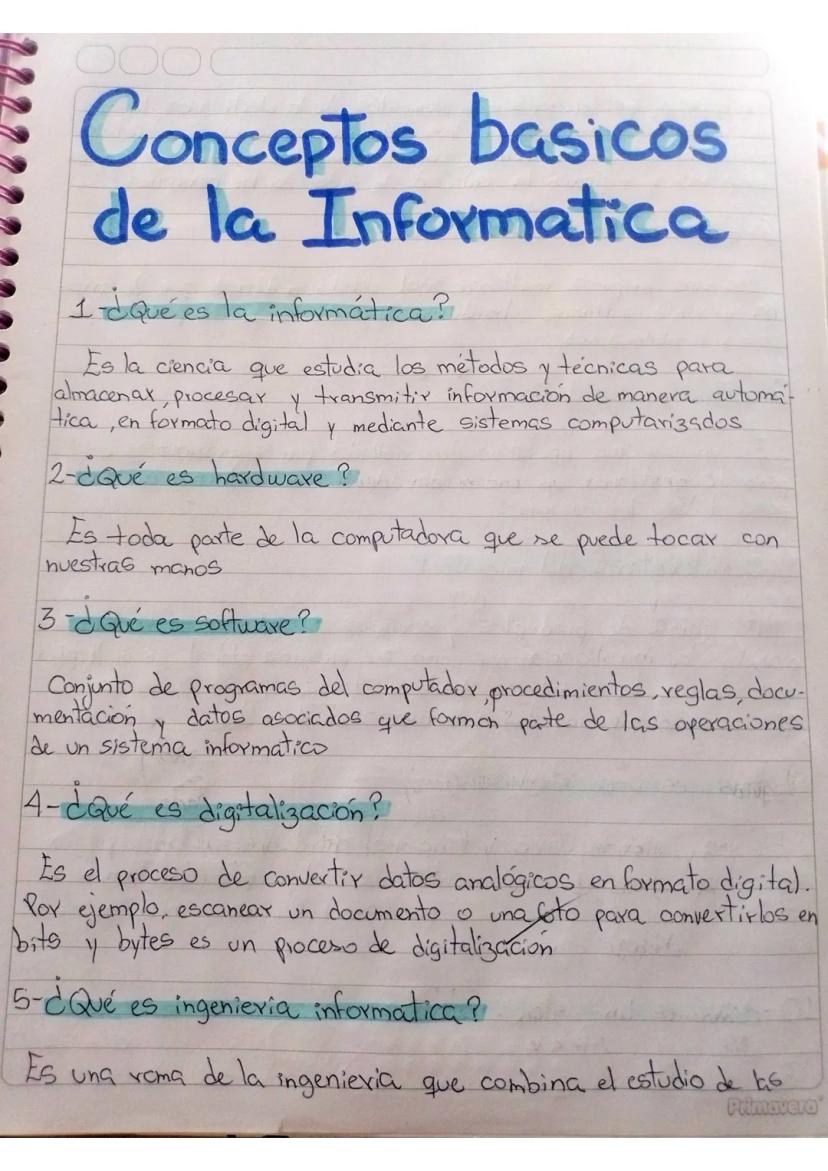 Conceptos basicos
de la Informatica
1-¿Qué es la informática?
Es la ciencia que estudia los métodos y técnicas para
almacenar, procesar y transmitir información de manera automá-
tica, en formato digital y mediante sistemas computarizados
2-¿Qué es hardware?
Es toda parte de la computadora que se puede tocar con
nuestras manos
3-¿Qué es software?
Conjunto de programas del computador, procedimientos, reglas, docu-
mentación y datos asociados que formen parte de las operaciones
de un sistema informatico
4-¿Qué es digitalización?
Es el proceso de convertir datos analógicos en formato digital.
Por ejemplo, escanear un documento o una foto para convertirlos en
bits y bytes es un proceso de digitalización
5-¿Qué es ingenieria informatica?
Es una rama de la ingenieria que combina el estudio de las
Primavera